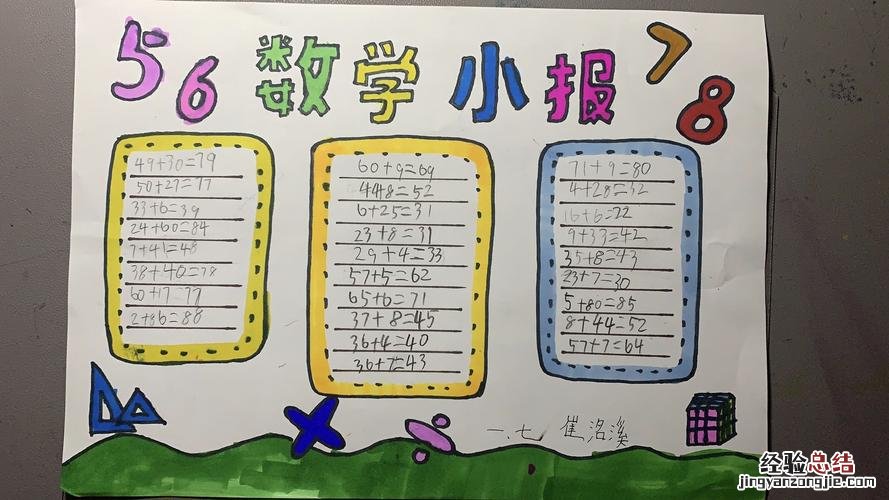 5 6 数学小报 7 8
49+30=79
50+27=77
33+6=39
24+60=84
7+41=48
38+40=78
60+17=77
2+86=88
60+9=69
44+8=52
6+25=31
23+8=31
29+4=33
57+5=62
65+6=71
37+8=45
36+4=40
36+7=43
71+9=80
4+28=32
16+6=22
9+33=42
35+8=43
23+7=30
5+80=85
8+44=52
57+7=64
一.七 崔洺溪
经验总结
jingyanzongjie.com